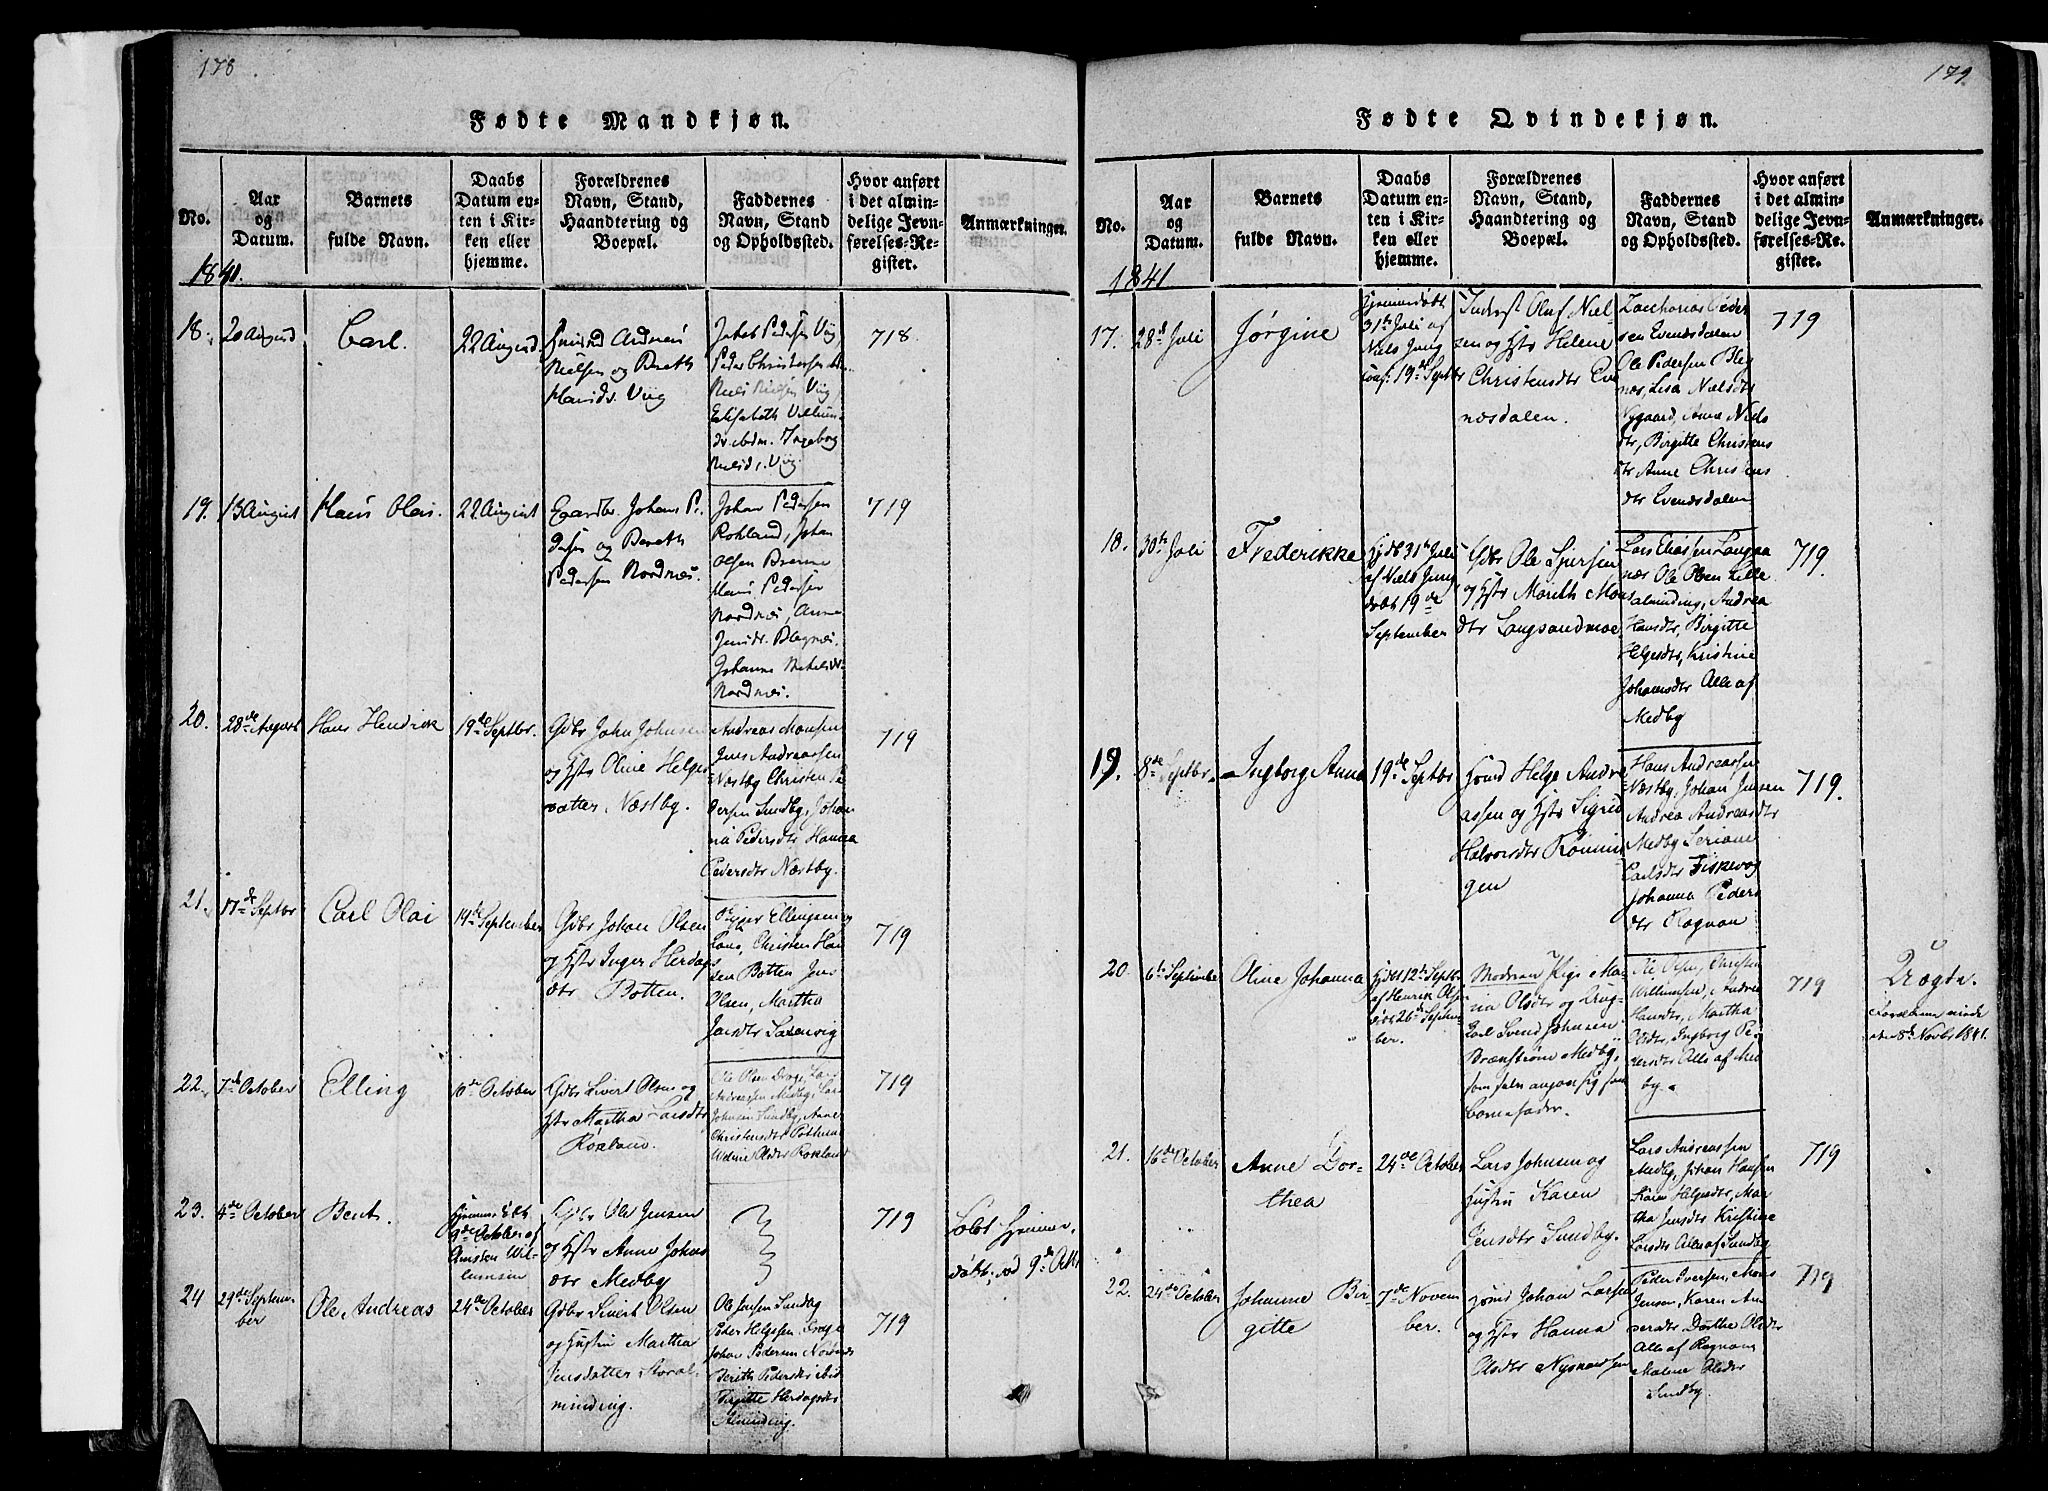 178
Fødte Mandkjøn.
No.
Aar
og
Datum.
Barnets
fulde Navn.
Daabs
Datum en-
ten i Kir-
ken eller
hjemme.
Forældrenes
Navn, Stand,
Haandtering og
Boepæl.
Faddernes
Navn, Stand
og Opholdssted.
Hvor anført
i det almin-
delige Jevn-
førelses-Re-
gister.
Anmærkninger.
1841.
18.
20 August
Carl.
22 August
Nielsen og Bereth
Viig
Jakob Pedersen Viig
Peder Christensen
Niels Nielsen Viig
Elisabeth
Ingeborg
Nielsd. Viig
718.
19.
13 August
Hans Olai.
22 August
Gaardbr. Johans Pe-
dersen og Bereth
Pedersen Nordnæs.
Johan Pedersen
Rokland, Johan
Olsen
Hans Pedersen
Nordnæs, Anne
Jensdr.
Johanna
Nordnæs.
719
20.
28de August
Hans Hendrik
19de Septbr.
Gdbr John Johnsen
og Hstr Oline Helges
datter Næstby.
Andreas Monsen
Jens Andreassen
Næstby Christen Pe
dersen Sundby, Johan
na Pedersdtr Hanna
Pedersdtr Næstby.
719
21.
17de Septbr
Carl Olai
19de September
Gdbr Johan Olsen
og Hstr Inger Herdags
dtr Botten.
Peder Ellingsen
Christen Han
sen Botten Jens
Olsen, Martha
Saxenvig
719
22.
7de October
Elling
10de October
Gdbr Sivert Olsen og
Hstr Martha Larsdtr
Roxland.
Ole Olsen
Andreassen Medby, Lars
Johnsen Sundby, Anne
Christensdtr
Olsdtr Roxland
719
23.
4de October
Bent.
Hjemmedøbt
9de October af
Christen Wil-
lumsen
Gdbr Ole Jensen
og Hstr Anne Johns
dtr Medby
719
Døbt hjemme.
døbt; død 9de Octbr
24
29de Septem-
ber
Ole Andreas
24de October
Gdbr Sivert Olsen
og Hustru Martha
Jensdatter Storal-
minding.
Ole Jensen Sundby
Peder Helgesen,
Johan Pedersen Nordnæs
Berith Pedersdtr ibid
Birgitte Herdagsdtr
Alminding.
719
179.
Fødte Qvindekjøn.
No.
Aar
og
Datum.
Barnets
fulde Navn.
Daabs
Datum en-
ten i Kir-
ken eller
hjemme.
Forældrenes
Navn, Stand,
Haandtering og
Boepæl.
Faddernes
Navn, Stand
og Opholdssted.
Hvor anført
i det almin-
delige Jevn-
førelses-Re-
gister.
Anmærkninger.
1841
17.
28de Juli
Jørgine
Hjemmedøbt
31te Juli af
Niels Jung
conf: 19de Septbr
Inderst Oluf Niel-
sen og Hstr Helene
Christensdtr Eve
næsdalen.
Zacharias Peder
sen Evenesdalen
Ole Pedersen
næs, Lisa Nielsdtr
Nygaard, Anne Niels
dtr, Birgitte Christens
dtr Anne Christens
dtr Evensdalen
719
18.
30te Juli
Frederikke
Hjdbt 31te Juli
af Niels Jung
døbt 19de
September
Gdbr Ole Sjursen
og Hstr Marith Mons
dtr Langsandmoe
Lars Eliassen Langsa
næs Ole Olsen Lille
alminding, Andrea
Hansdtr, Birgitte
Helgesdtr, Kristine
Johansdtr Alle af
Medby
719.
19.
8de Septbr.
Ingborg Anna
19de Septbr
Hsmd Helge Andre
assen og Hstr Sigrid
Halvorsdtr
gen
Hans Andreassen
Næstby, Johan Jensen
Andrea Andreasdtr
Medby Seriane
Carlsdtr Fiskevog
Johanna Peders
dtr Rognan
719.
20.
6te September
Oline Johanna
Hjdbt 12te Septbr
af Henrik Olsen
døbt 26de Septem-
ber.
Moderen Pige Ma-
ria Olsdtr og Ung-
karl Svend Johnsen
Brænstrøm Medby,
som selv angav sig som
Barnefader.
Ole Olsen, Christen
Willumsen, Andrea
Hansdtr, Martha
Olsdtr, Ingborg Pe-
dersdtr Alle af Med
by.
719
Uægte.
Forældrene
den 8de Novbr 1841.
21.
16de October
Anne Dor-
thea
24de October
Lars Johnsen og
Hustru Karen
Jensdtr Sundby.
Lars Andreassen
Medby, Johan Hansen
Karen Helgesdtr, Mar
tha Jensdtr Kristine
Larsdtr Alle af Sundby
719
22.
24de October
Johanne Bir-
gitte
7de Novem
ber.
Hsmd Johan Larsen
og Hstr Hanna
Olsdtr
Peder Iversen, Mons
Jensen, Karen An
dersdtr Dorthe Olsdtr
Alle af Rognan
Malene Olsdtr
Sundby.
719